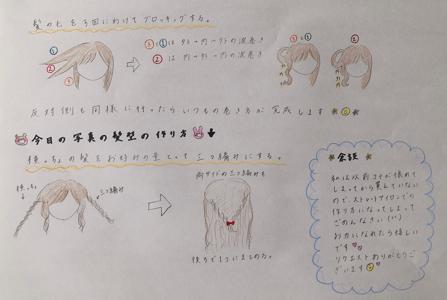 髪の毛を3回にわけてブロッキングする。
①③は外-内-外の波巻き
②は内-外-内の波巻き
① ② ③
反対側も同様に行ったらいつもの巻き方が完成します
今日の写真の髪型の作り方
横っちょの髪をお好みの量とって三つ編みにする。
横っちょ
三つ編み
両サイドの三つ編みを
後ろで1つにまとめる。
余談
私は以前コテが壊れて
しまってから買えていない
ので、ストレートアイロンでの
作り方になってしまって
ごめんなさい
お力になれたら嬉しい
です
リクエストありがとうご
ざいます